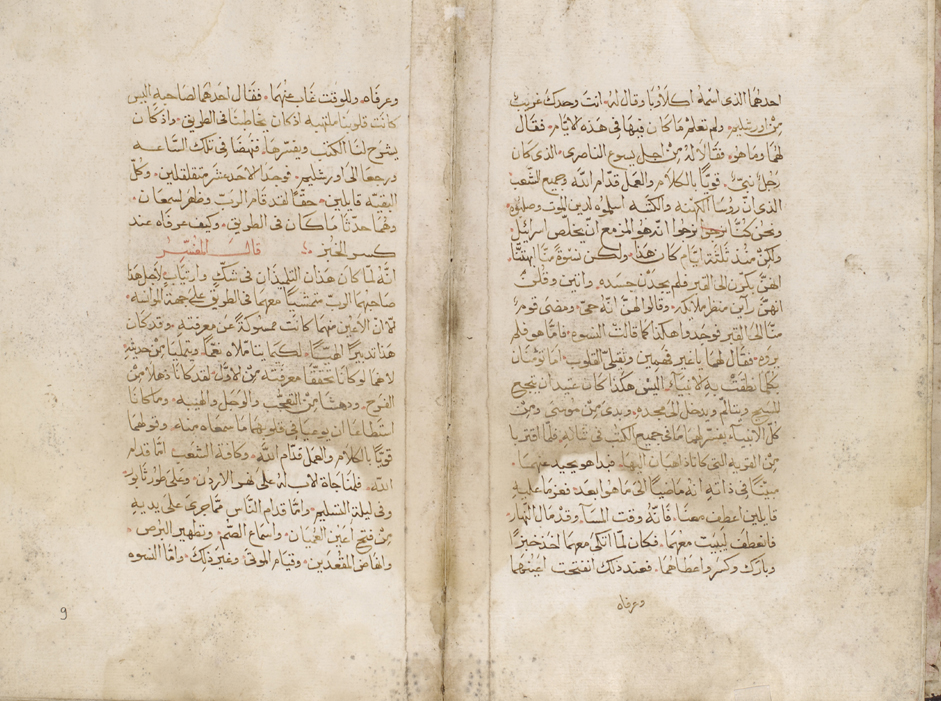 احدهما الذى اسمه اكلاوبا وقال له انت وحدك غريب
من اورشليم ولم تعلم ما كان فيها فى هذه الايام فقال
لهما وما هو فقالا له من اجل يسوع الناصرى الذى كان
رجل نبى قويًا بالكلام والعمل قدام الله وجميع الشعب
الذى ان روسا الكهنه والكتبه اسلموه لدين الموت وصلبوه
ونحن كنا نرجوا نرجوا انه هو المزمع ان يخلص اسرائيل
ولكن منذ ثلثة ايام كان هذا ولكن نسوة منا
انهن بكرن الى القبر فلم يجدن جسده واتين وقلن
انهن راين منظر ملائكه وقالوا لهن انه حى ومضى قوم
منا الى القبر فوجدوا هكذا كما قالت النسوه فاما هو فلم
يروه فقال لهما يا غير فهمين وثقيلى القلوب اما تومنان
بكلما نطقت به الانبياء اليس هكذا كان عتيد ان
المسيح ويتالم ويدخل الى مجده وبدى من موسى ومن
كل الانبياء يفسر لهما ما فى جميع الكتب فى شانه فلما اقتربا
من القريه التى كانا ذاهبان اليها فبدا هو يحيد عنهما
مبينًا فى ذاته انه ماضيًا الى ما هو ابعد فعزما عليه
قايلين اعطف معنا فانه وقت المسآء وقد مال النهار
فانعطف ليبيت معهما فكان لما اتكى معهما اخذ خبزًا
وبارك وكسر واعطاهما فعند ذلك انفتحت اعينهما
وعرفاه
وعرفاه وللوقت غاب عنهما فقال احدهما لصاحبه اليس
كانت قلوبنا ملتهبه اذ كان يخاطبنا فى الطريق واذ كان
يشرح لنا الكتب ويفسرها فنهضا فى تلك الساعه
ورجعا الى اورشليم فوجدا الاحد عشر متقلقلين وكل
البقيه قايلين حقًا لقد قام الرب وظهر لسمعان
وهما حدثا ما كان فى الطريق وكيف عرفاه عند
كسر الخبز قال المفسر
انه لما كان هذان التلميذان فى شك وارتياب لاجل هذا
صاحبهما الرب معهما فى الطريق على جهة الوانسه
ثم ان الاعين منهما كانت ممسوكة عن معرفته وقد كان
هذا تدبيرًا الهيًا لكيما يتاملاه نعمًا ويتمليا من حديثه
لانهما لو كانا تحققا معرفته من الاول لقد كانا ذهلا من
الفرح ودهشا من التعجب والوجل والهيبه وما كانا
استطاعا ان يوعيا فى قلوبهما ما سمعاه منه وقولهما
قويًا بالكلام والعمل قدام الله وكافة الشعب اما قدام
الله فلمناجاة الاب له على نهر الاردن وعلى طور تابور
وفى ليلة التسليم واما قدام الناس فما جرى على يديه
من فتح اعين العميان واسماع الصم وتطهير البرص
وانهاض المقعدين وقيام الموتى وغير ذلك واما النسوه
9